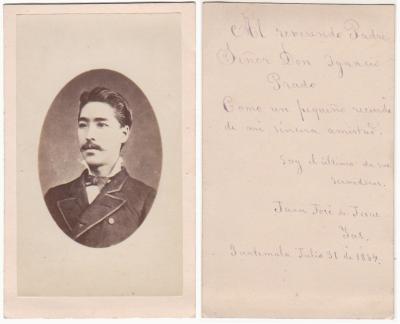 Al reverendo Padre
Señor Don Ignacio
Prado
Como un pequeño recuerdo
de mi sincera amistad.
Soy el último de sus
servidores.
Juan José de
Guatemala Julio 31 de